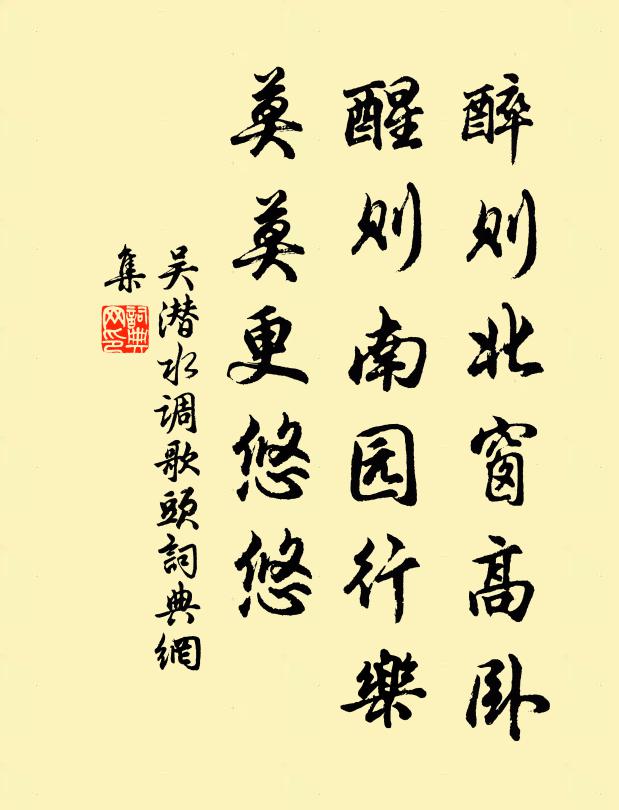 醉则北窗高卧
醒则南园行樂
莫莫更悠悠
吴潜水调歌頭詞典網
集
詞典网印